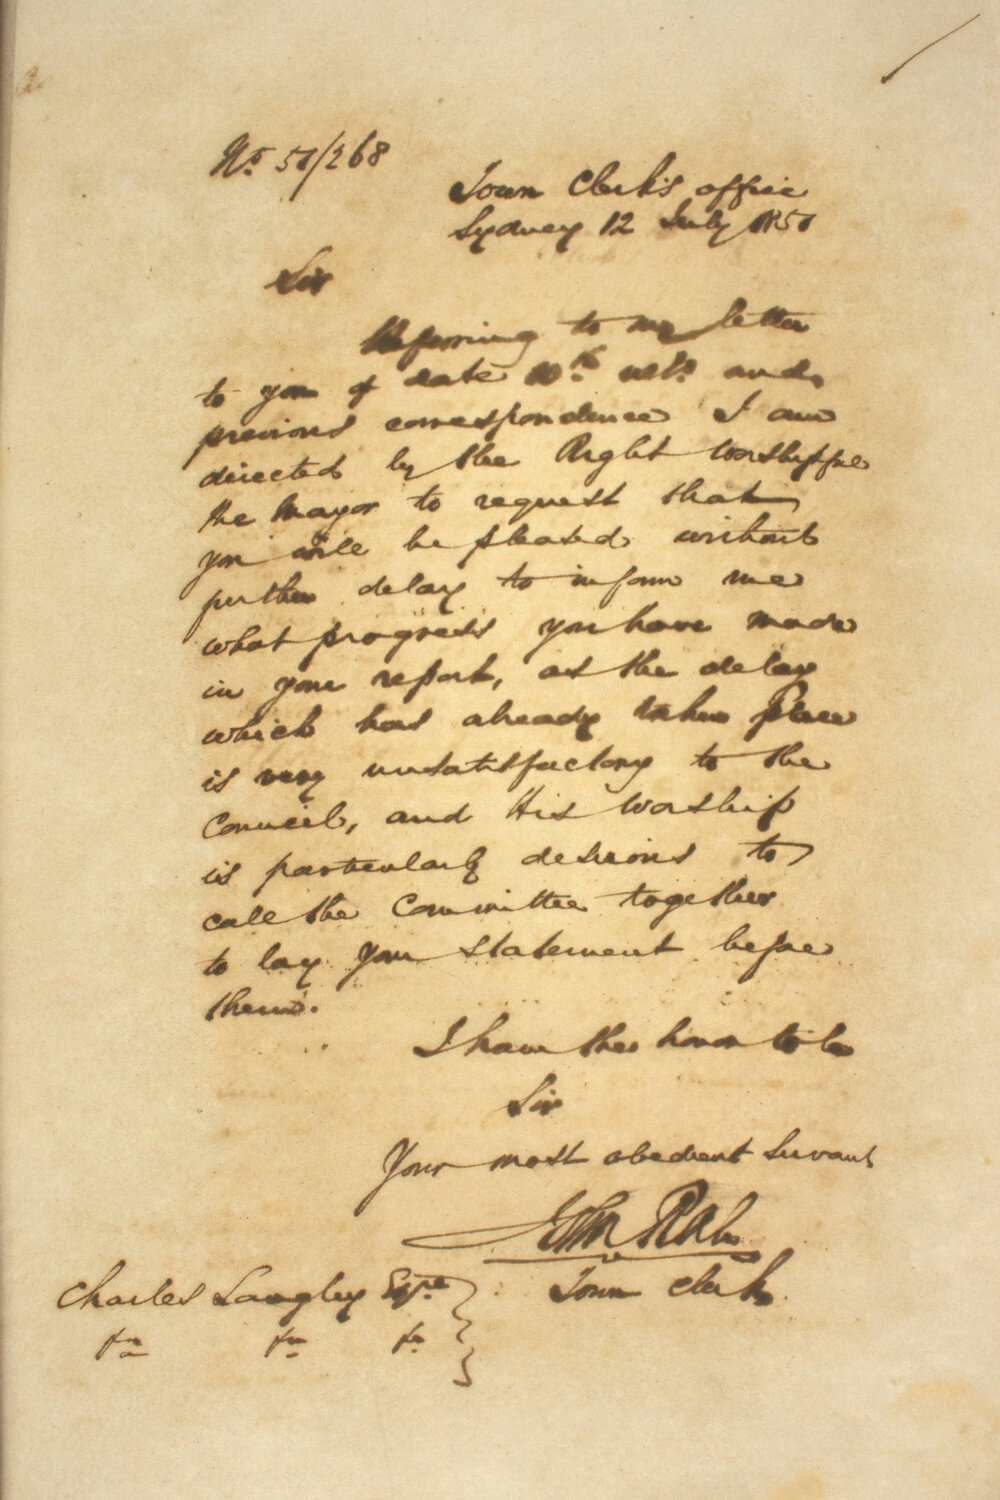 No. 50/268
Town Clerk's office
Sydney 12 July 1850
Sir
Referring to my letter
to you of date 10th ult. and
previous correspondence I am
directed by the Right Worshipful
the Mayor to request that
you will be pleased without
further delay to inform me
what progress you have made
in your report, as the delay
which has already taken place
is very unsatisfactory to the
Council, and His Worship
is particularly desirous to
call the Committee together
to lay your statement before
them.
I have the honor to be
Sir
Your most obedient Servant
John Rae
Town Clerk
Charles Langley Esqre